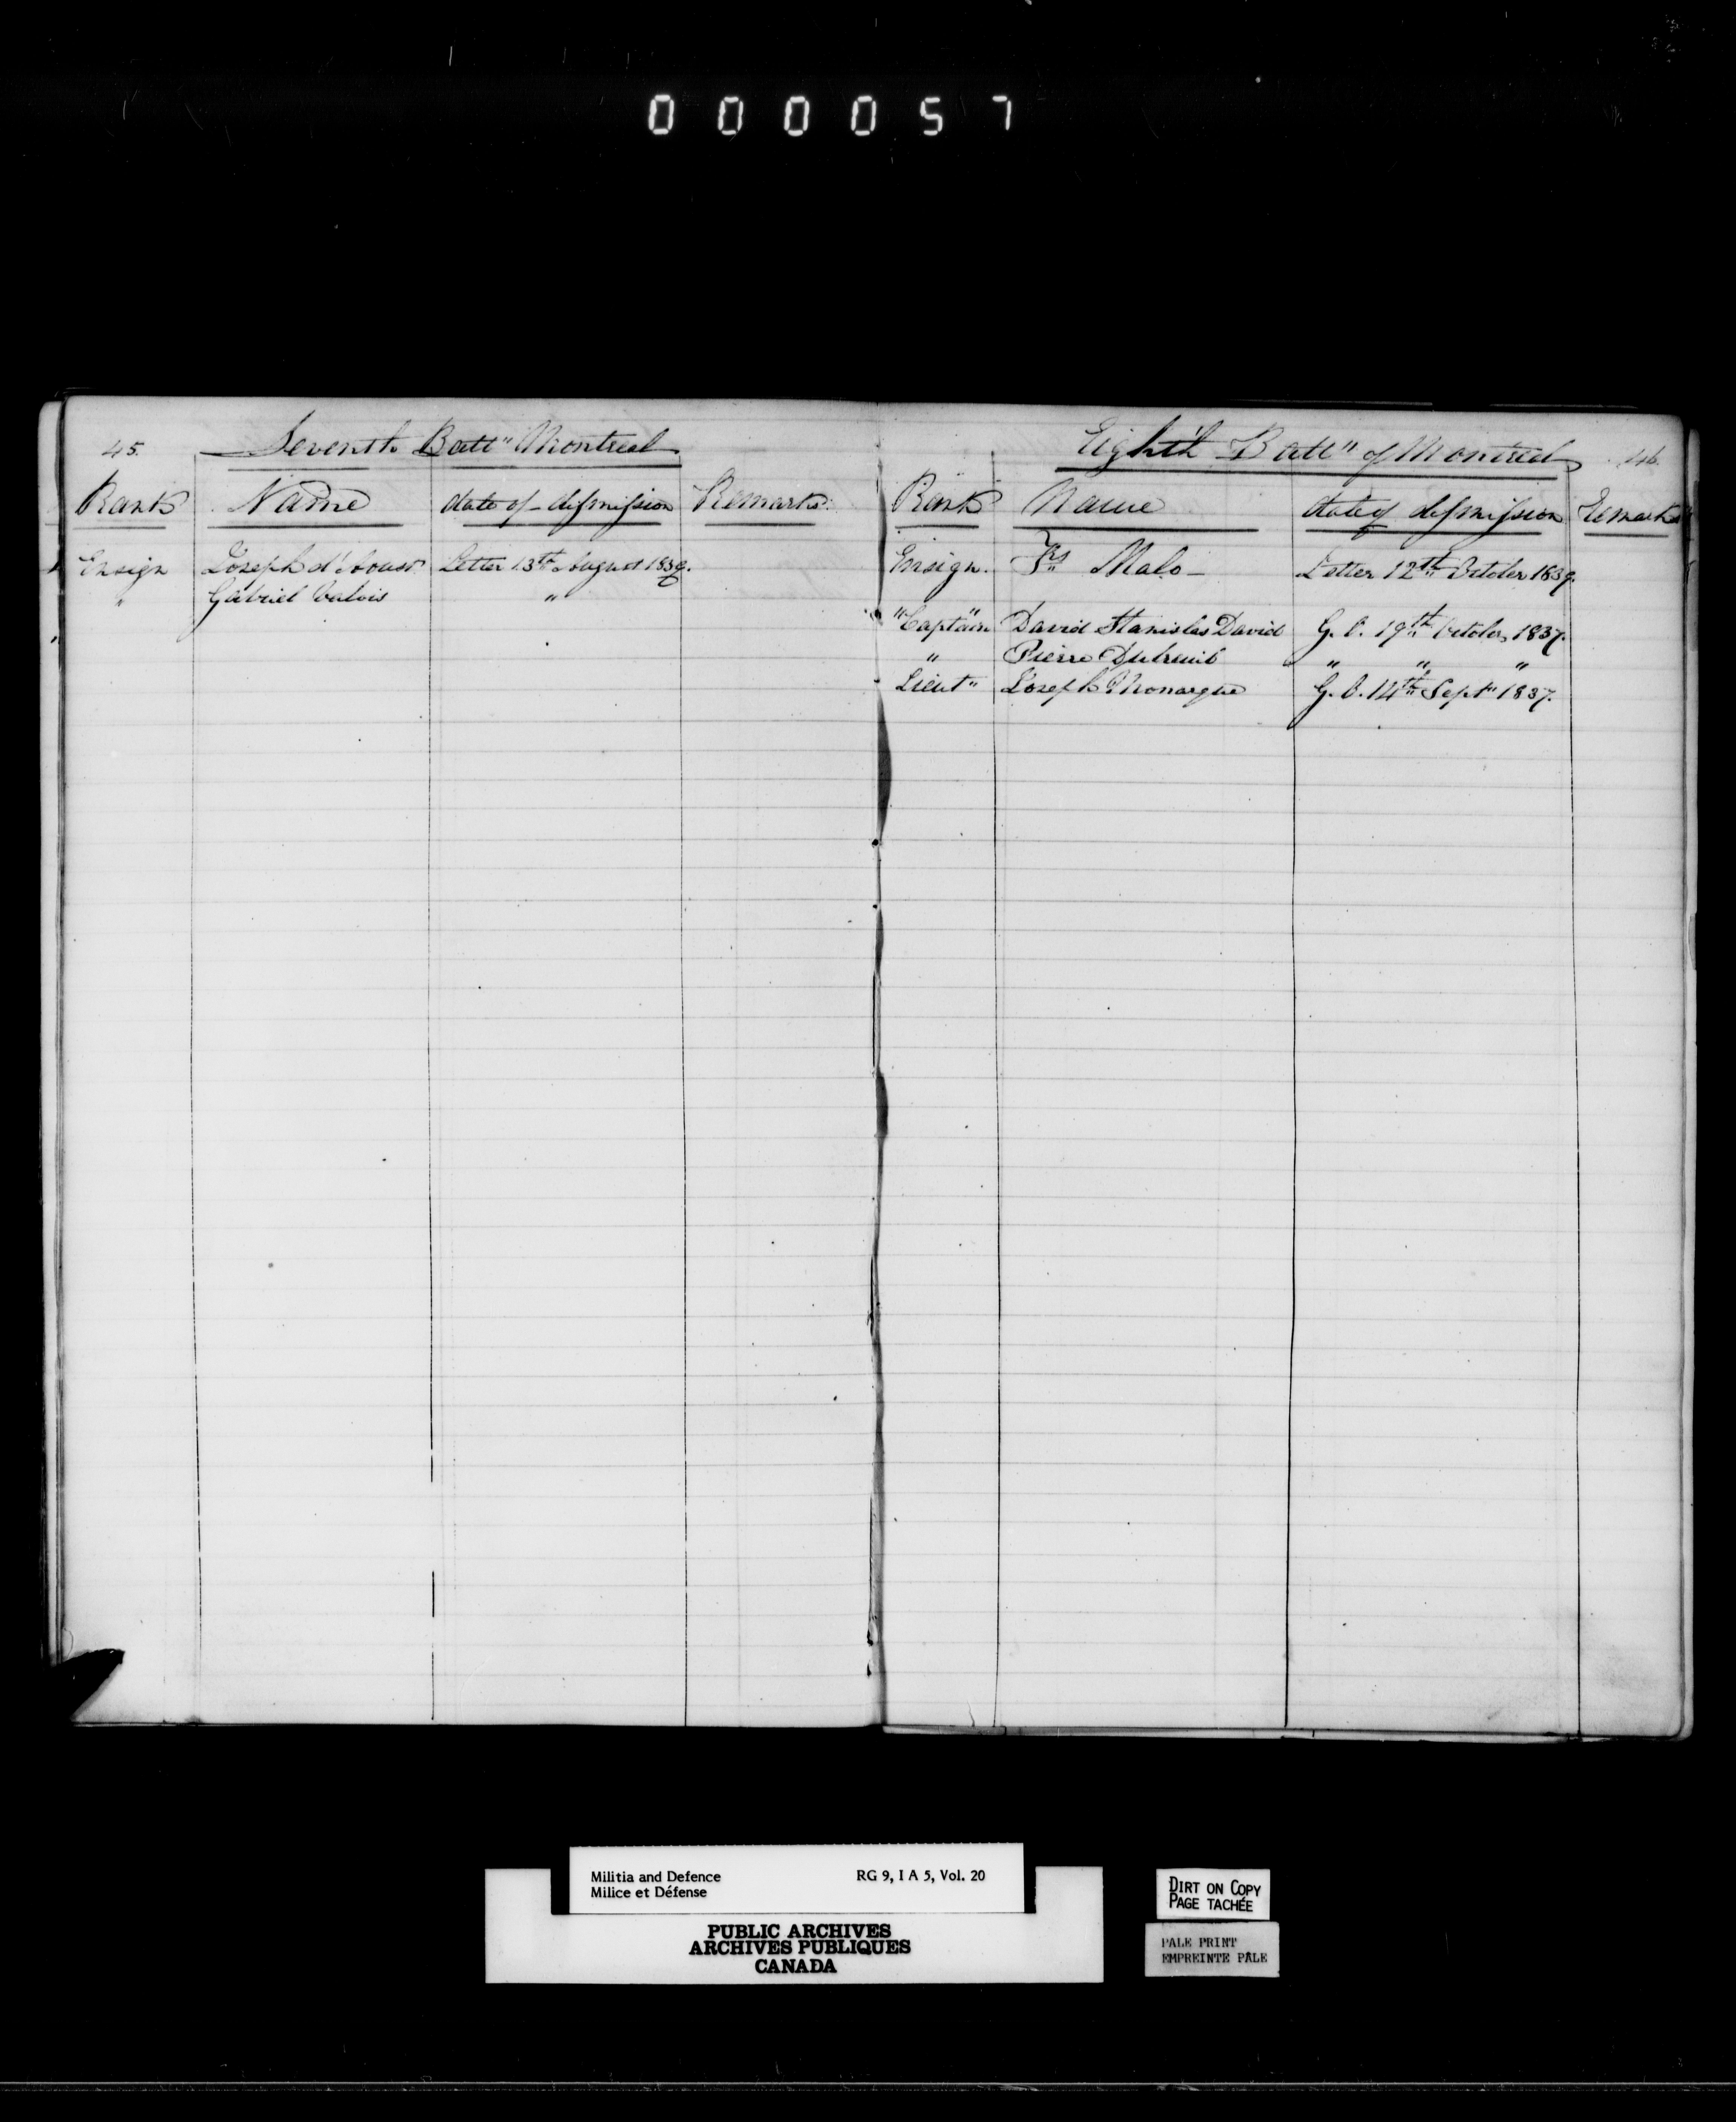 000057
45. Seventh Batt" Montreal
Rank Name date of dismission Remarks.
Ensign Joseph d'Aoust Letter 13th August 1839.
" Gabriel Valois "
Eighth Batt" of Montreal 46.
Rank Name date of dismission Remarks
Ensign. Frs Malo - Letter 12th October 1839.
"Captain" David Stanislas David G.O. 19th October, 1837.
" Pierre Dutreuil " " "
Lieut" Joseph Monarque G.O. 14th Sept" 1837.
Militia and Defence RG 9, I A 5, Vol. 20
Milice et Défense
PUBLIC ARCHIVES
ARCHIVES PUBLIQUES
CANADA
DIRT ON COPY
PAGE TACHÉE
PALE PRINT
EMPREINTE PÂLE